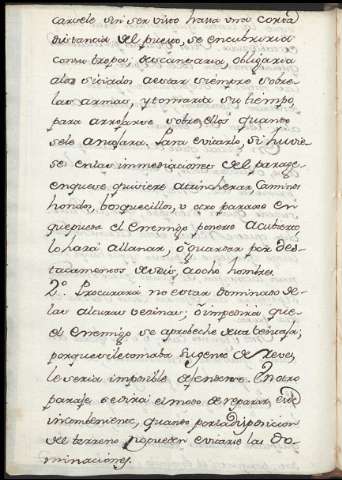 carsele sin ser visto hasta una corta
distancia del puesto, se encubriria
con su tropa, descansaria, obligaria
a los sitiados a estar siempre sobre
las armas, y tomaria su tiempo,
para arrojarse sobre ellos quando
se le antojara. Para evitarlo, si huvie
se en las immediaciones del parage
en que se quisiere atrincherar, caminos
hondos, bosquecillos, u otro parage en
que pueda el enemigo ponerse a cubierto
lo hará allanar, ó guardar por des-
tacamentos de seis, a ocho hombres
2º. Procurará no estar dominado de
las alturas vecinas; ó impedirá que
el enemigo se aprobeche de esta ventaja;
porque si le tomaba su genò de Reves,
le seria imposible defenderse. En otro
parage se dirá el modo de reparar este
incombeniente, quando por la disposicion
del terreno no pueden evitarse las Do-
minaciones.